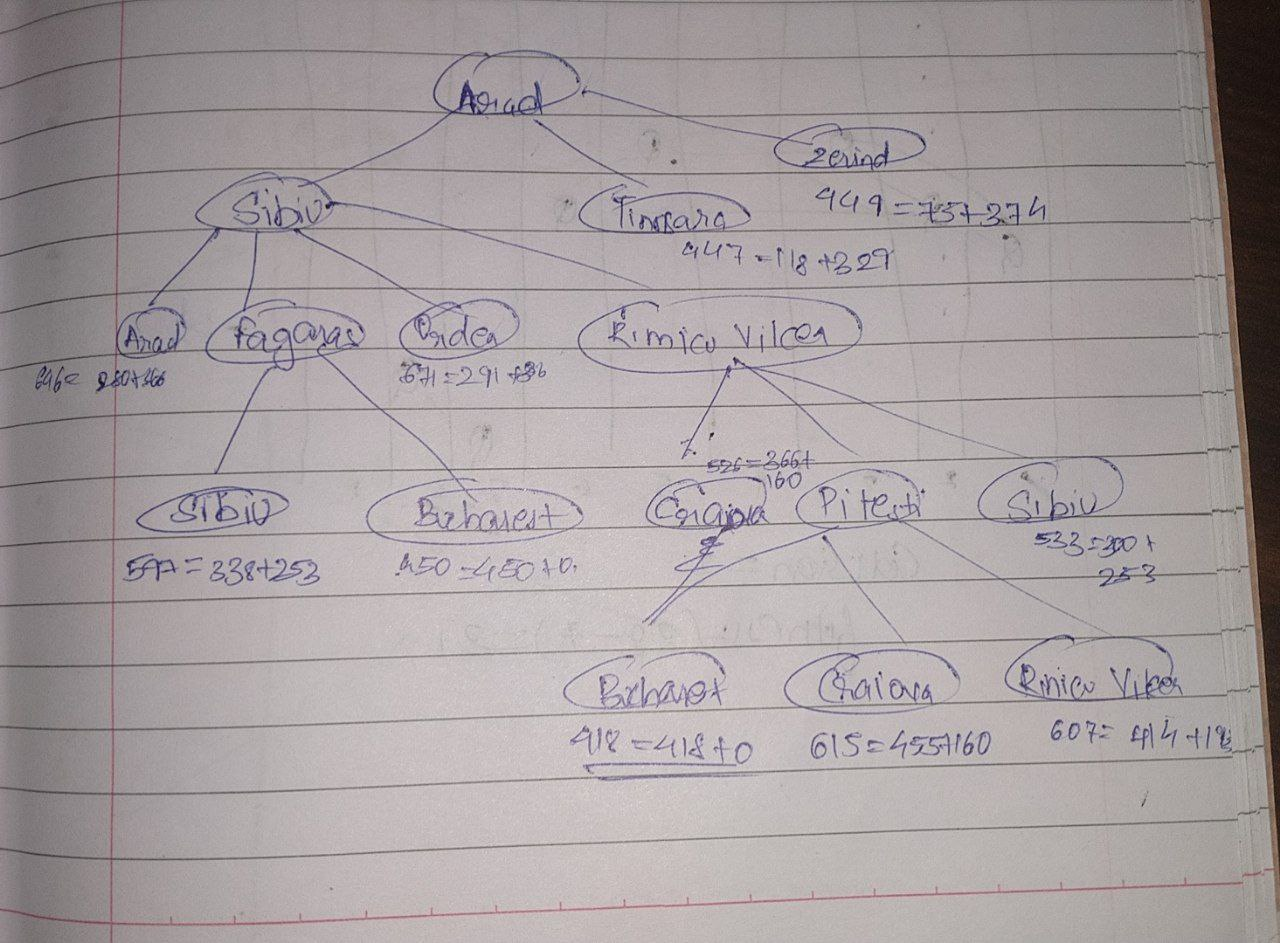 Arad
Zerind
449 = 75+374
Sibiu
Timsara
447 = 118+329
Arad
646= 280+366
Fagaras
Ordea
671=291+
Rimicu Vilcea
526=366+
160
Sibiu
= 338+253
Bucharest
450=450+0
Craiova
Pitesti
Sibiu
533=300+
253
Bucharest
418=418+0
Craiova
615=455+160
Rmicu Vilcea
607= 414+193